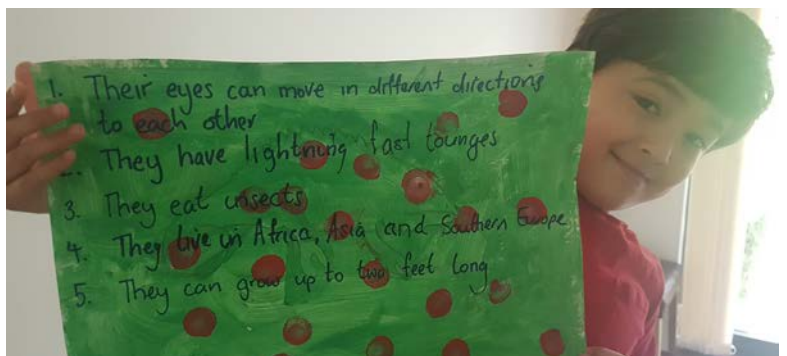 1. Their eyes can move in different directions
to each other
2. They have lightning fast tounges
3. They eat insects
4. They live in Africa, Asia and Southern Europe
5. They can grow up to two feet long